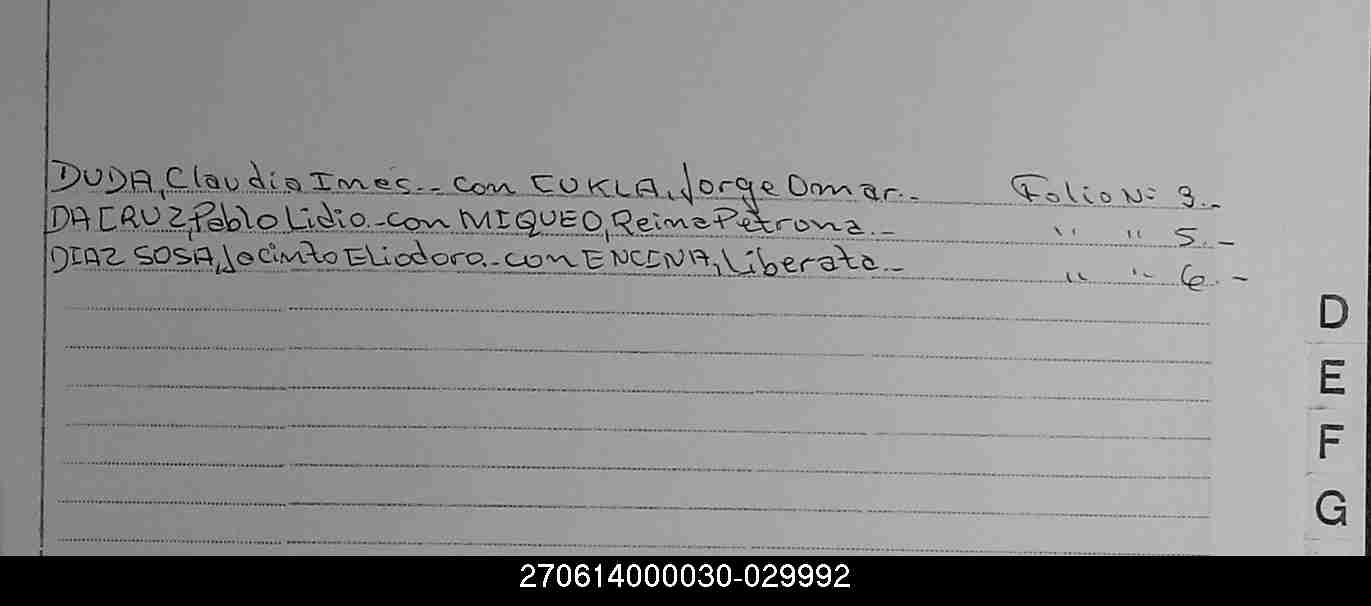 DUDA, Claudia Ines.- con CUKLA, Jorge Omar.- Folio Nº 3.-
DA CRUZ, Pablo Lidio.- con MIQUEO, Reina Petrona.- " " 5.-
DIAZ SOSA, Jacinto Eliodoro.- con ENCINA, Liberata.- " " 6.-
D
E
F
G
270614000030-029992